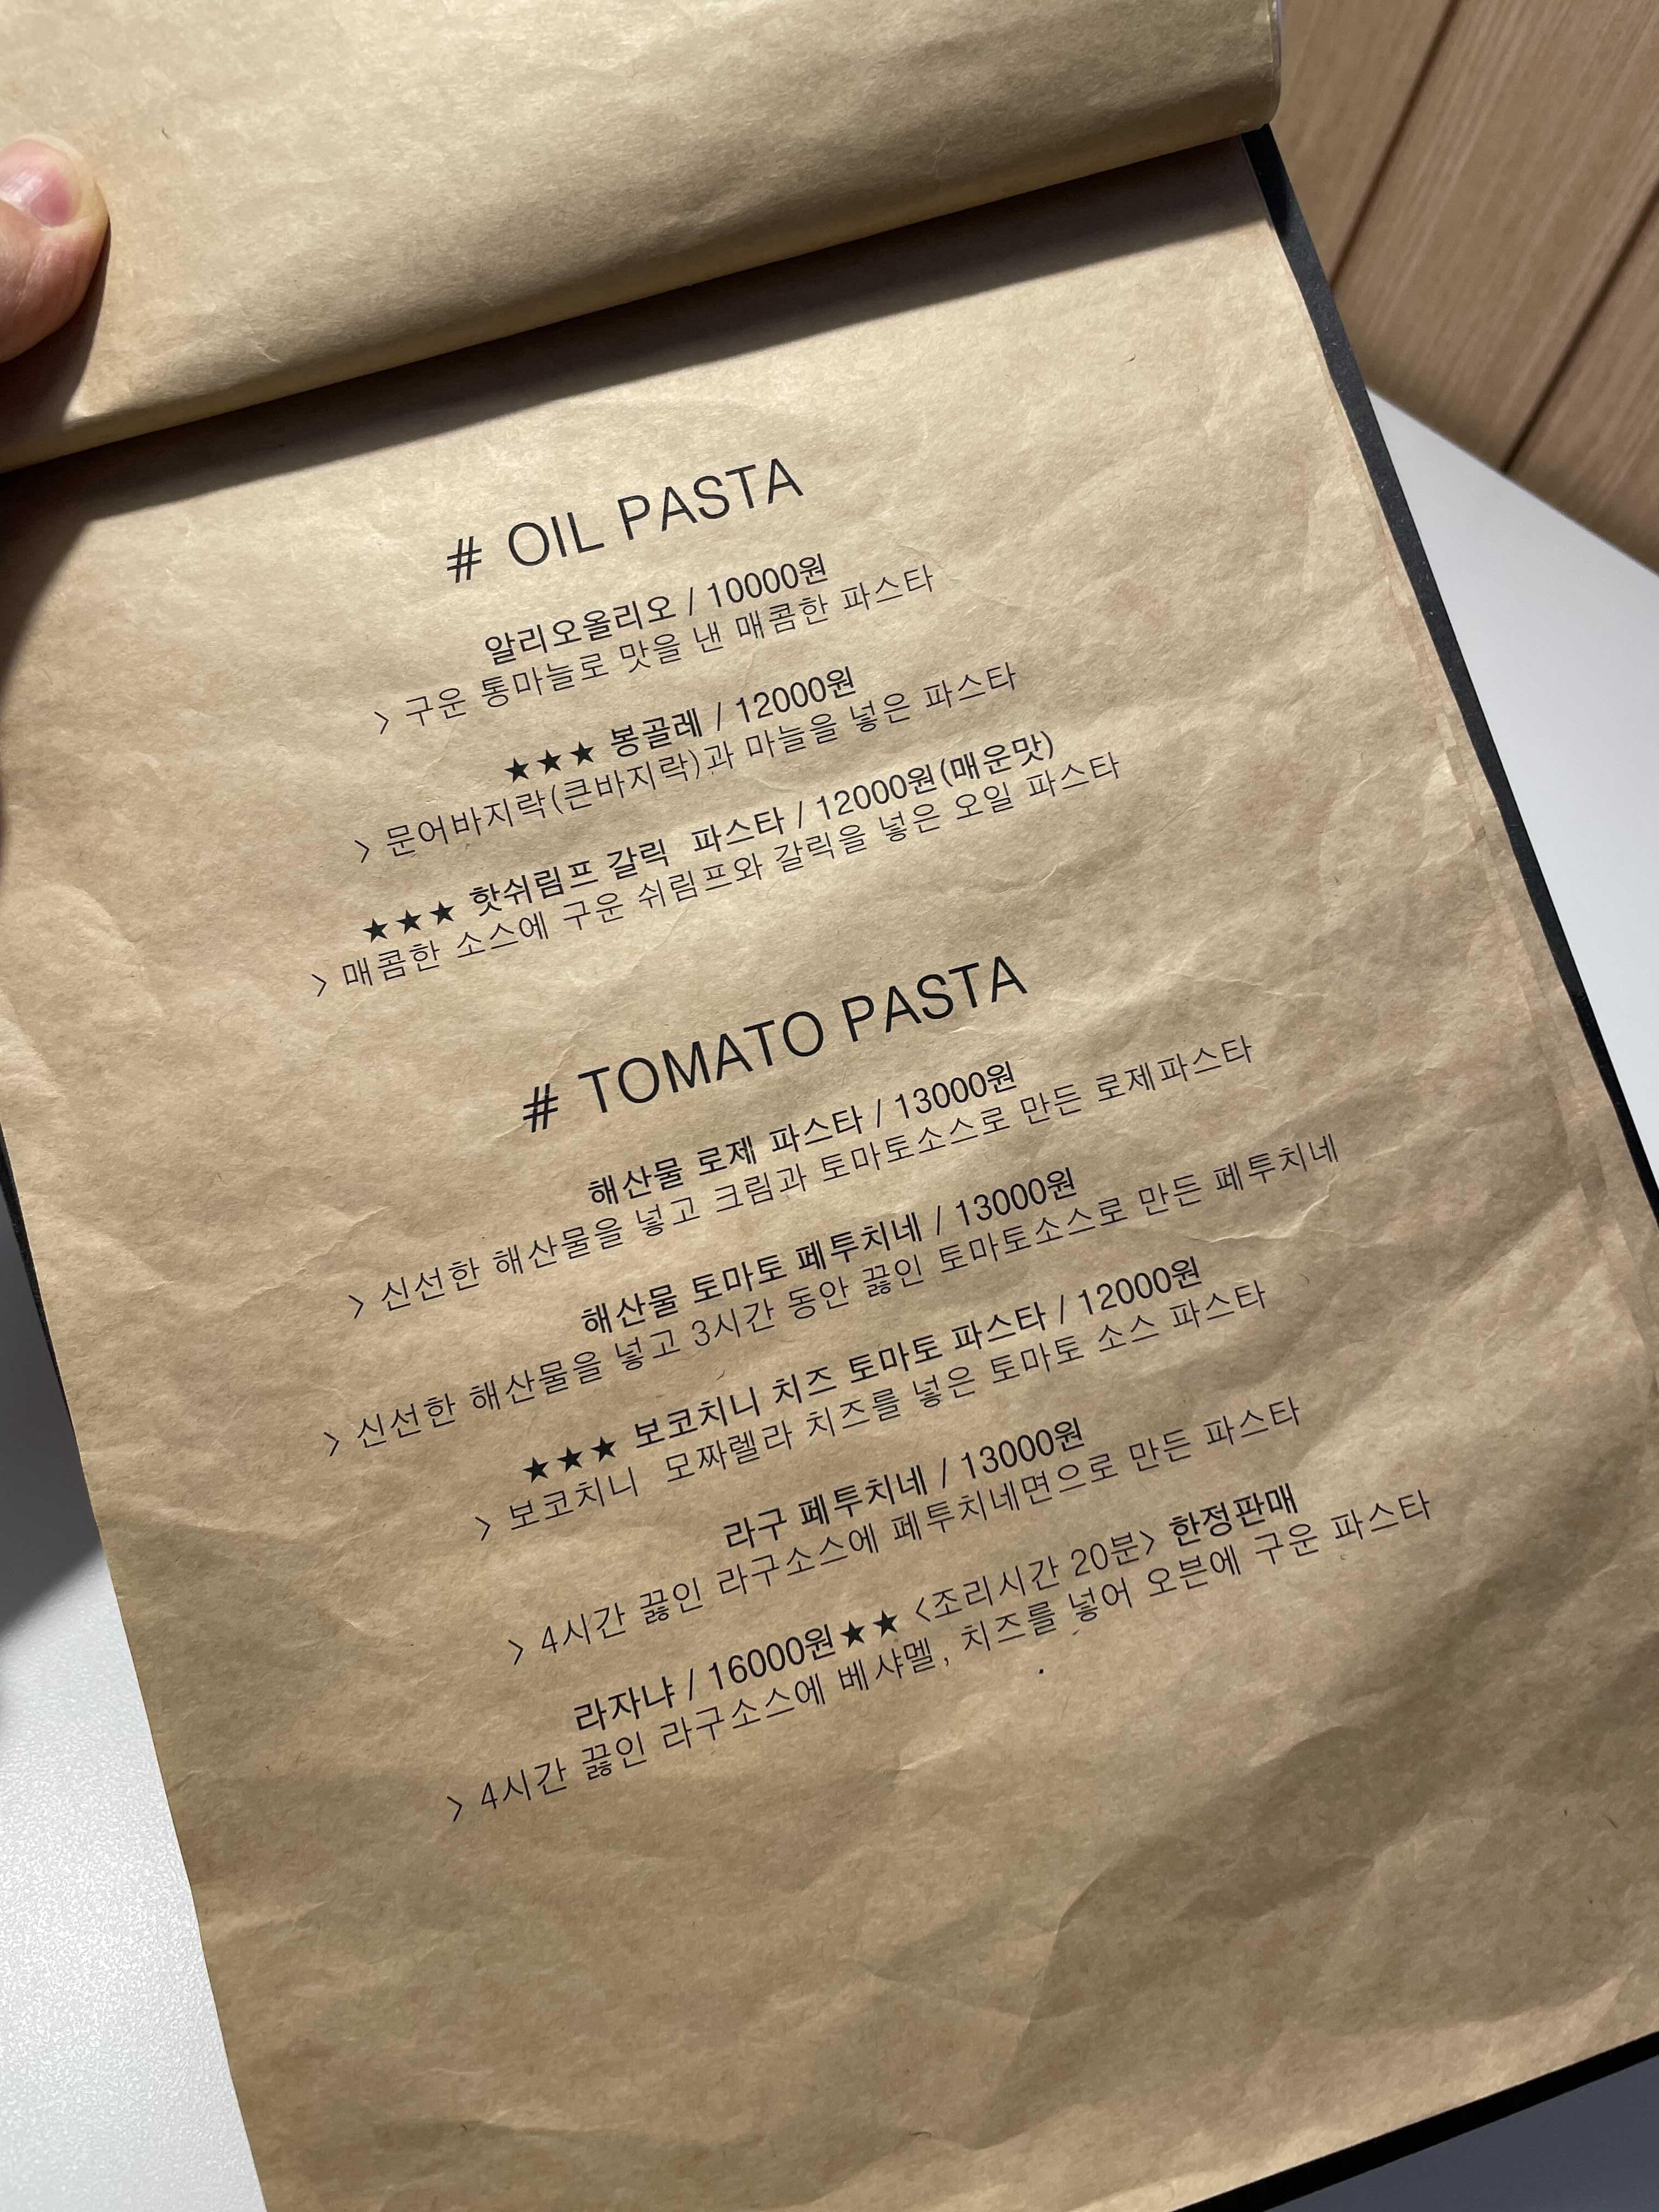 # OIL PASTA
알리오올리오 / 10000원
> 구운 통마늘로 맛을 낸 매콤한 파스타
★★★ 봉골레 / 12000원
> 문어바지락(큰바지락)과 마늘을 넣은 파스타
★★★ 핫쉬림프 갈릭 파스타 / 12000원(매운맛)
> 매콤한 소스에 구운 쉬림프와 갈릭을 넣은 오일 파스타
# TOMATO PASTA
해산물 로제 파스타 / 13000원
> 신선한 해산물을 넣고 크림과 토마토소스로 만든 로제파스타
해산물 토마토 페투치네 / 13000원
> 신선한 해산물을 넣고 3시간 동안 끓인 토마토소스로 만든 페투치네
★★★ 보코치니 치즈 토마토 파스타 / 12000원
> 보코치니 모짜렐라 치즈를 넣은 토마토 소스 파스타
라구 페투치네 / 13000원
> 4시간 끓인 라구소스에 페투치네면으로 만든 파스타
라자냐 / 16000원★★ <조리시간 20분> 한정판매
> 4시간 끓인 라구소스에 베샤멜, 치즈를 넣어 오븐에 구운 파스타